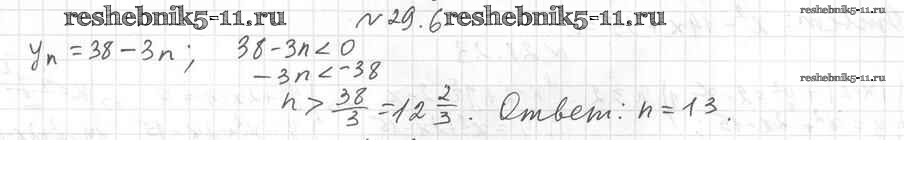 reshebnik5-11.ru №29.6 reshebnik5-11.ru reshebnik5-11.ru
yₙ = 38 - 3n; 38 - 3n < 0
- 3n < -38 reshebnik5-11.ru
n > 38/3 = 12 2/3. Ответ: n = 13.